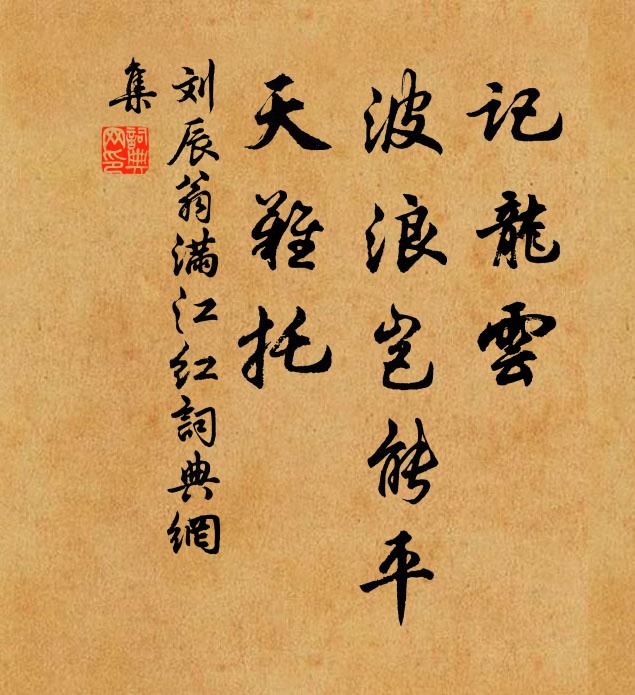 记龍雲
波浪岂能平
天難托
刘辰翁满江红詞典網
集
詞典网印